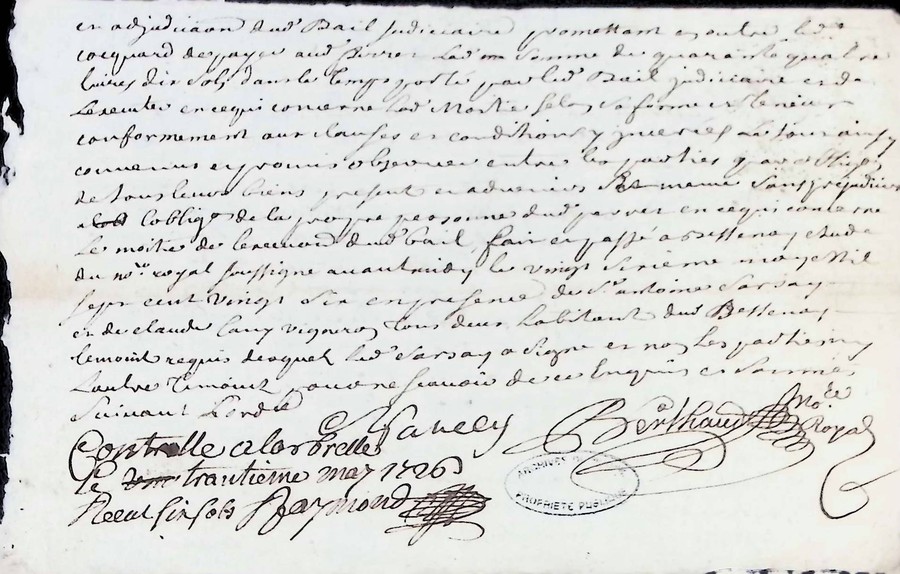 en adjudicaon dud. Bail Judiciaire promettant en outre led.
cocquard de payer aud. perret lad. somme de quarante quatre
livres dix sols dans le temps porté par led. Bail judiciaire et de
l'executer en ce qui concerne lad. Moitié selon sa forme et teneur
conformement aux clauses et conditions y inserées Le tout ainsy
convenus et promis observer entre les parties
de tous leurs biens present et advenirs Et meme sans prejudicier
a l'oblig. de la propre personne dud. perret en ce qui concerne
le moitié de dud. bail, fait et passé a Bessenay etude
du nore. royal soussigne avant midy le vingt sixieme may mil
sept cent vingt six en presence de Sr. antoine Sarsay
et de claude vigneron tous deux habitant dud. Bessenay
temoins requis desquels led. Sarsay a signe et non les parties ny
l'autre temoins pour ne sçavoir de ce Enquis et Sommés
Suivant L'ordce
Sarcey Berthaud No.re Royal
Controlle a larbrelle
le trantieme may 1726
Receu six sols Raymond
ARCHIVES
PROPRIÉTÉ PUBLIQUE